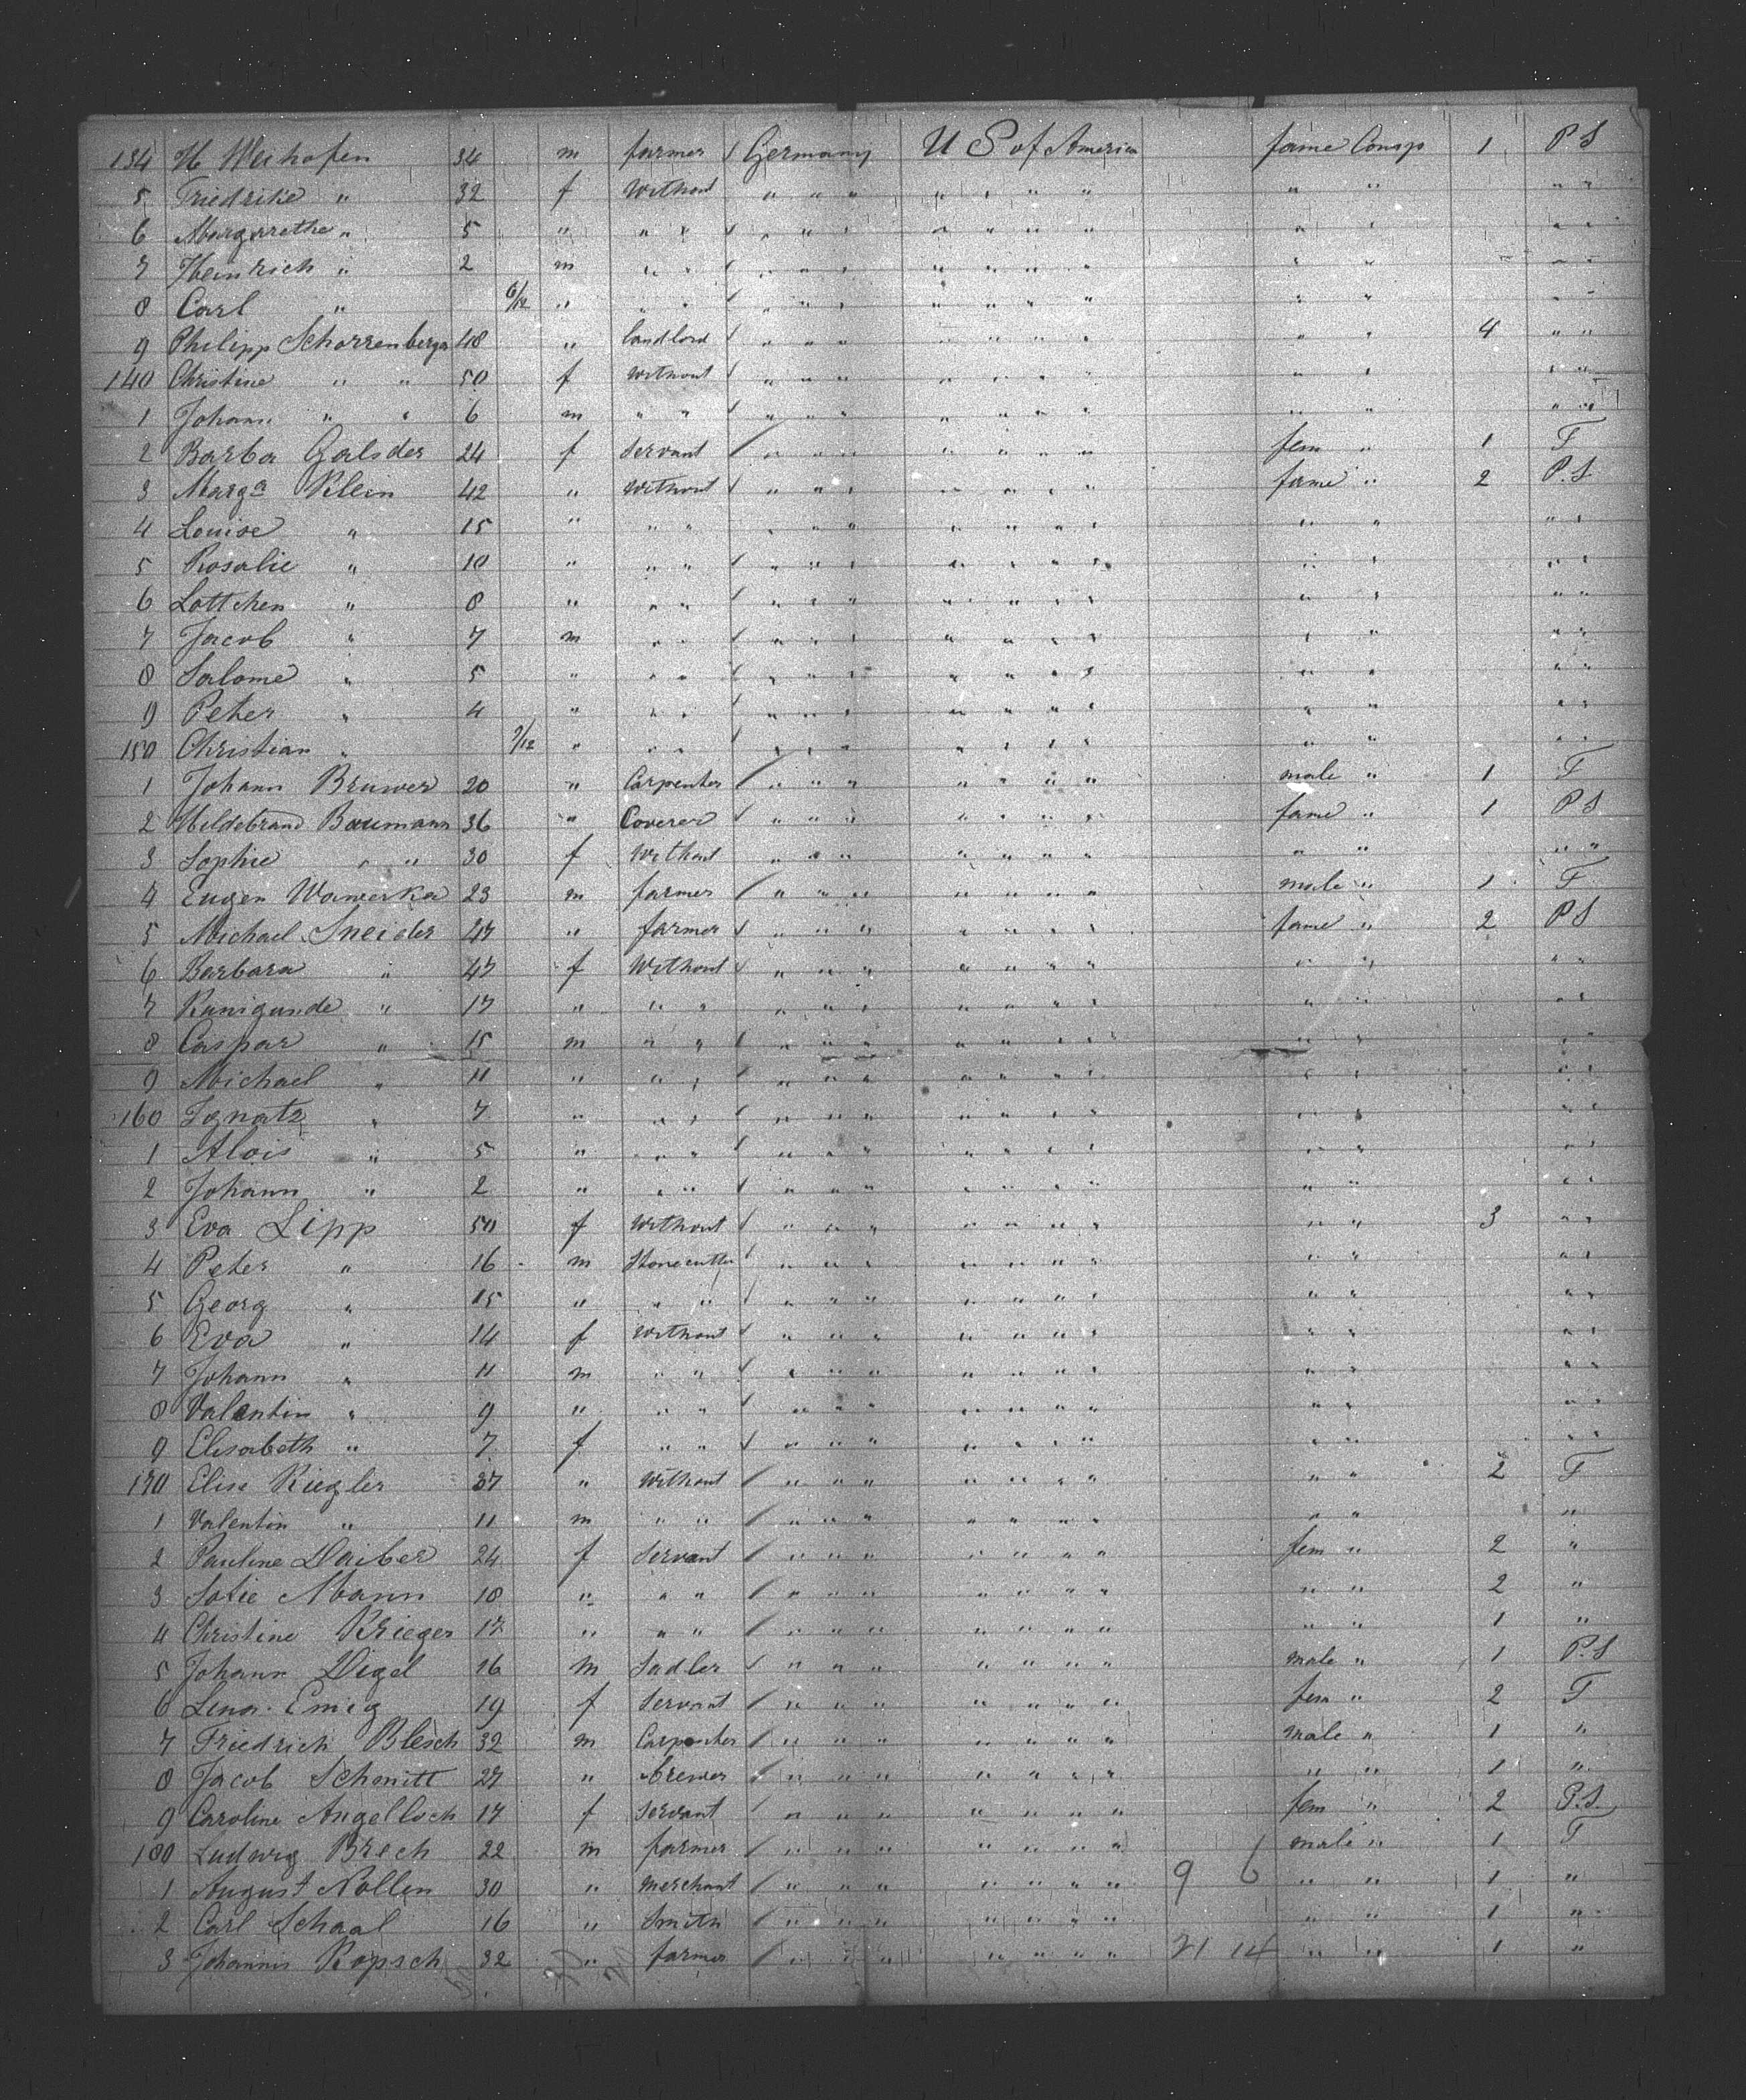 134 H Weihofen 34 m farmer Germany U S of America fame Comp 1 P S
5 Friedrike " 32 f Without " " " " " " " " " " "
6 Margarethe " 5 " " " " " " " " " " " " " "
7 Heinrich " 2 m " " " " " " " " " " " " "
8 Carl " 6/12 " " " " " " " " " " " " " "
9 Philipp Scharrenberger 48 " landlord " " " " " " " " " 4 " "
140 Christine " " 50 f Without " " " " " " " " " " "
1 Johann " " 6 m " " " " " " " " " " " " "
2 Barba Galsder 24 f Servant " " " " " " " fem " 1 F
3 Marga Klein 42 " Without " " " " " " " fame " 2 P.S
4 Louise " 15 " " " " " " " " " " " " " "
5 Rosalie " 10 " " " " " " " " " " " " " "
6 Lottchen " 8 " " " " " " " " " " " " " "
7 Jacob " 7 m " " " " " " " " " " " " "
8 Salome " 5 " " " " " " " " " " " " " "
9 Peter " 4 " " " " " " " " " " " " " "
150 Christian " 9/12 " " " " " " " " " " " " " "
1 Johann Bruwer 20 " Carpenter " " " " " " " male " 1 F
2 Hildebrand Baumann 36 " Coverer " " " " " " " fame " 1 P S
3 Sophie " " 30 f Without " " " " " " " " " " "
4 Eugen Wawerka 23 m farmer " " " " " " " male " 1 F
5 Michael Sneider 47 " farmer " " " " " " " fame " 2 P S
6 Barbara " 47 f Without " " " " " " " " " " "
7 Kunigunde " 17 " " " " " " " " " " " " " "
8 Caspar " 15 m " " " " " " " " " " " " "
9 Michael " 11 " " " " " " " " " " " " " "
160 Ignatz " 7 " " " " " " " " " " " " " "
1 Alois " 5 " " " " " " " " " " " " " "
2 Johann " 2 " " " " " " " " " " " " " "
3 Eva Lipp 50 f Without " " " " " " " " " 3 " "
4 Peter " 16 m Stonecutter " " " " " " " " " " "
5 Georg " 15 " " " " " " " " " " " " " "
6 Eva " 14 f Without " " " " " " " " " " "
7 Johann " 11 m " " " " " " " " " " " " "
8 Valentin " 9 " " " " " " " " " " " " " "
9 Elisabeth " 7 f " " " " " " " " " " " " "
170 Elise Riegler 37 " Without " " " " " " " " " 2 F
1 Valentin " 11 m " " " " " " " " " " " "
2 Pauline Daiber 24 f Servant " " " " " " " fem " 2 "
3 Sofie Mann 18 " " " " " " " " " " " " 2 "
4 Christine Krieger 17 " " " " " " " " " " " " 1 "
5 Johann Digel 16 m Sadler " " " " " " " male " 1 P.S
6 Lena Emig 19 f Servant " " " " " " " fem " 2 F
7 Friedrich Blesch 32 m Carpenter " " " " " " " male " 1 "
8 Jacob Schmitt 27 " brewer " " " " " " " " " 1 "
9 Caroline Angelloch 17 f Servant " " " " " " " fem " 2 P.S
180 Ludwig Brech 22 m farmer " " " " " " " male " 1 F
1 August Nollen 30 " Merchant " " " " " " " 9 6 " " 1 "
2 Carl Schaal 16 " Smith " " " " " " " " " 1 "
3 Johannis Ropsch 32 " farmer " " " " " " " 21 14 " " 1 "